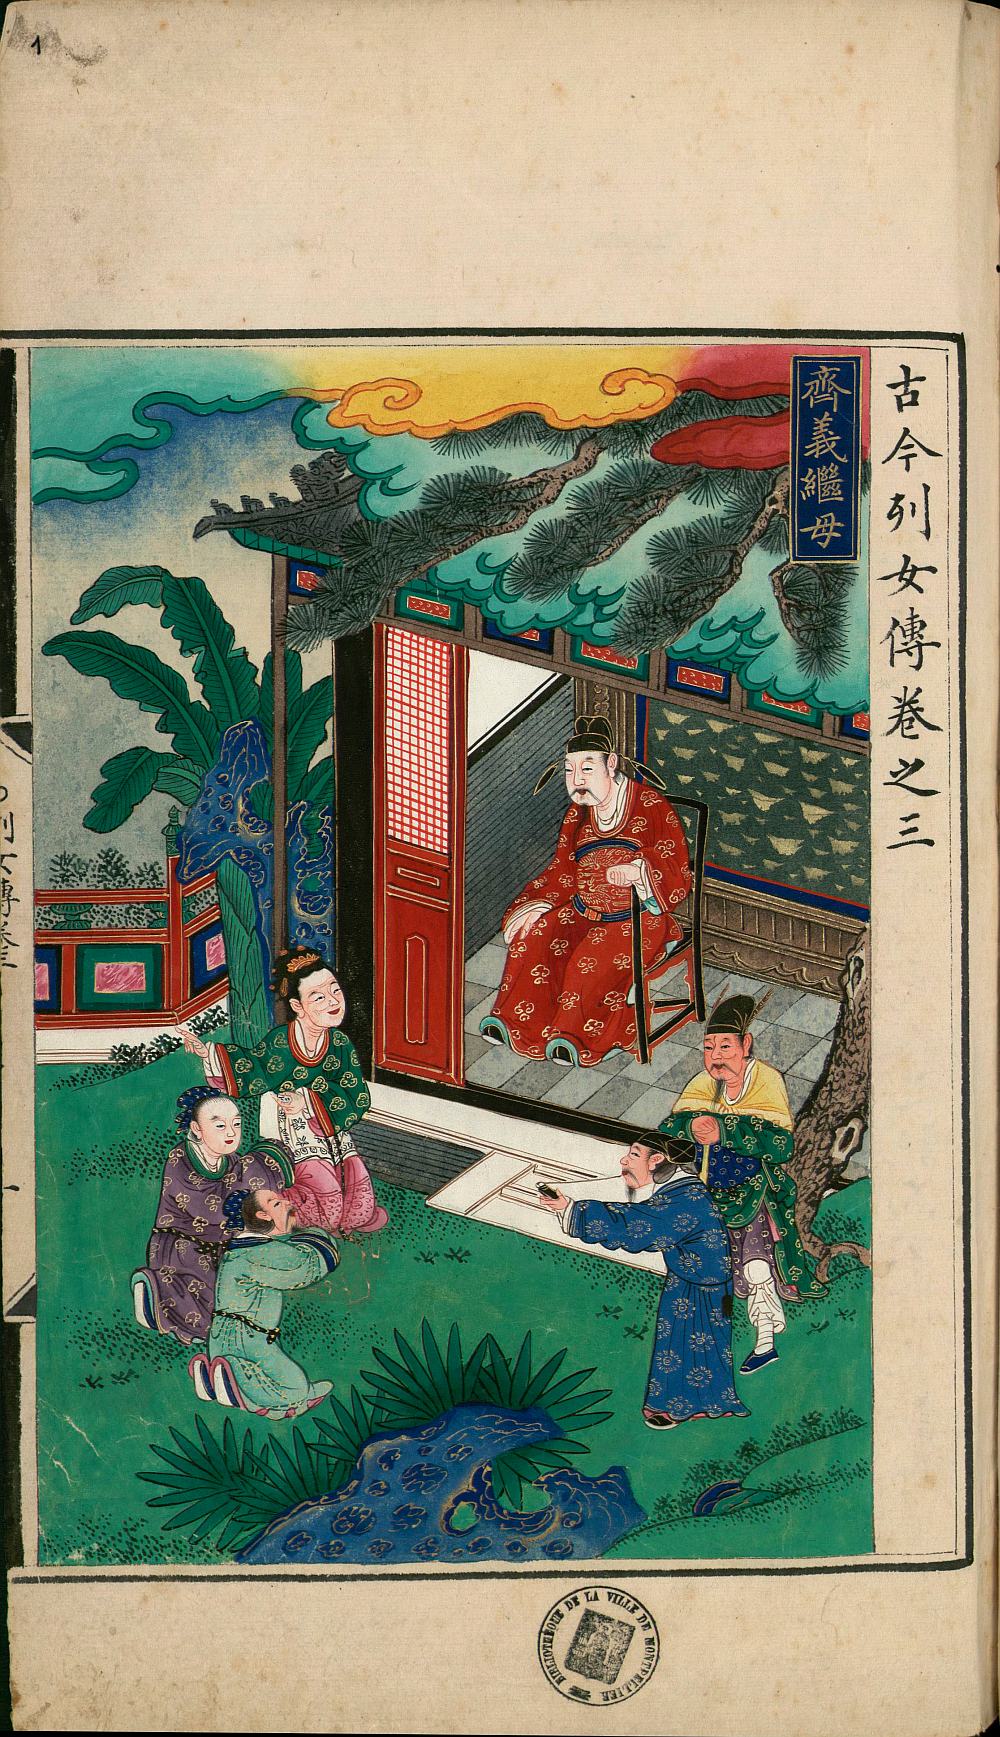 古今列女傳卷之三
齊義繼母
1
列女傳卷三
BIBLIOTHEQUE DE LA VILLE DE MONTPELLIER